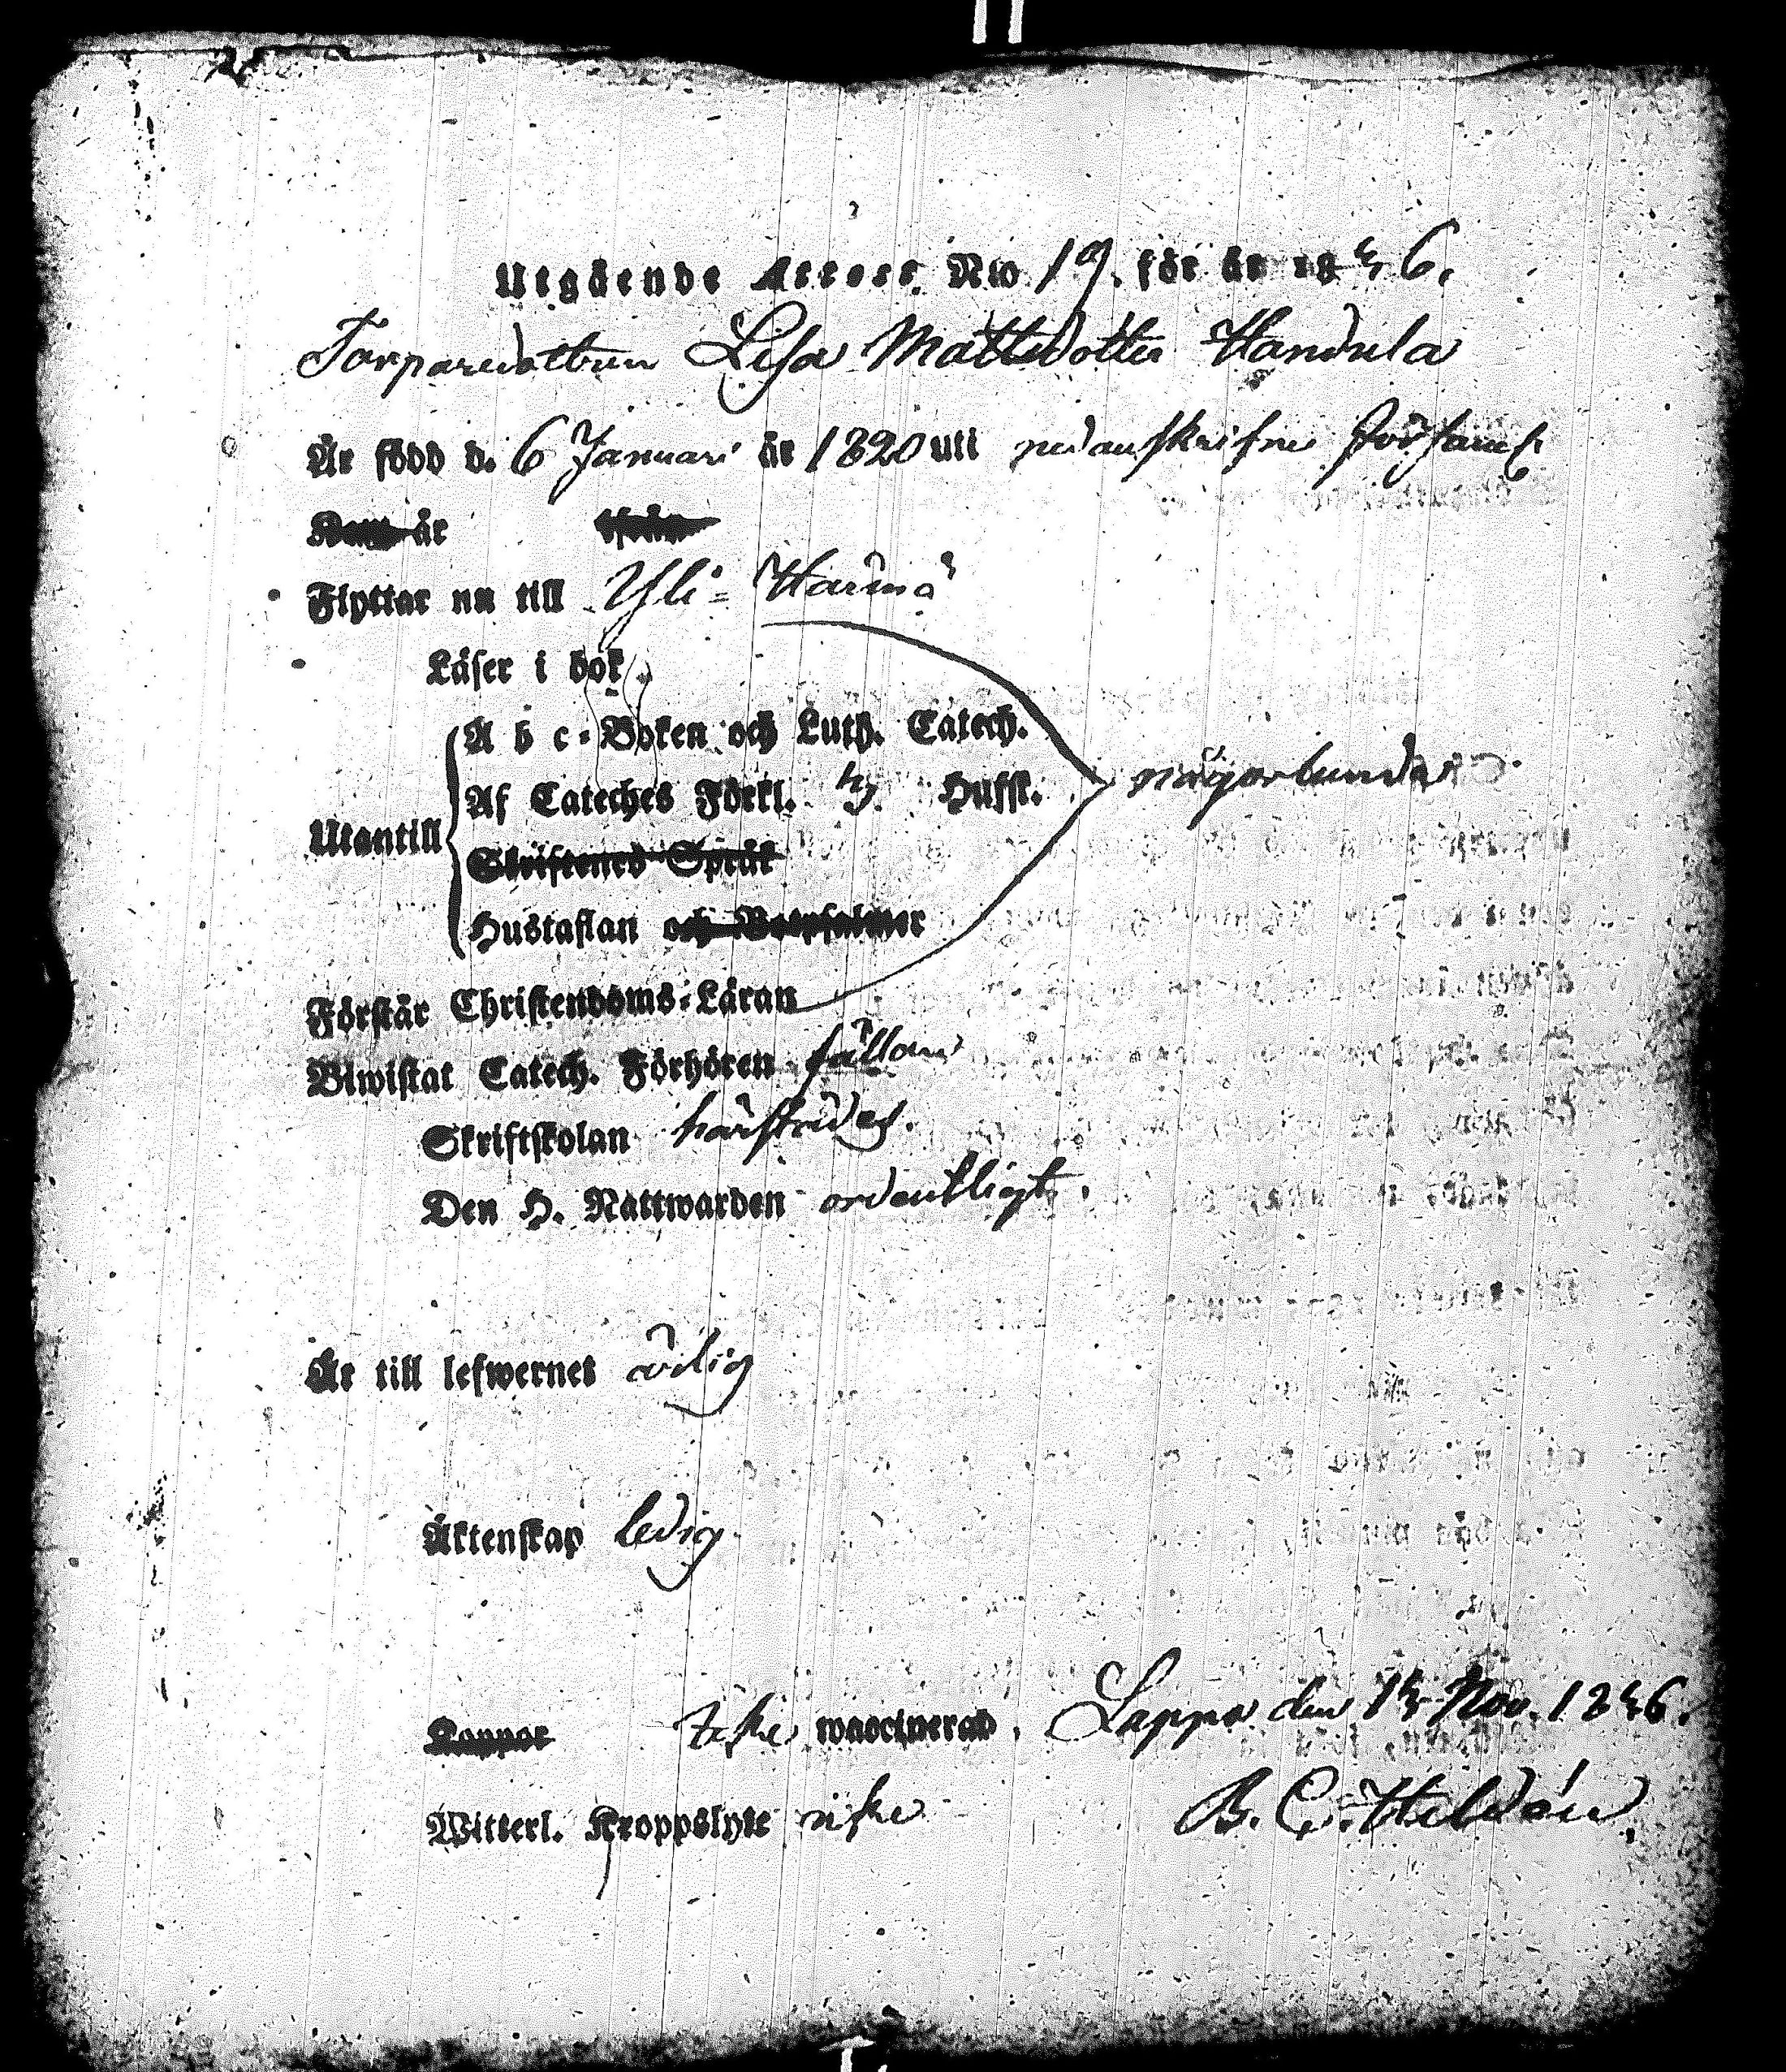 Utgående Attest Nio 19. för år 1846.
Torparedottren Lisa Mattsdotter Handula
Är född d. 6 Januari år 1820 uti nedanskrifne församl
Kom år ifrån
Flyttar nu till Yli-Härmä
Läser i bok
A b c-Boken och Luth. Catech.
Af Cateches Förkl. Hufst. någorlunda
Utantill
Skriftenes Språk
Hustaflan och Botpsalmer
Förstår Christendoms-Läran
Biwistat Catech. Förhören sällan
Skriftskolan härstädes.
Den H. Nattwarden ordentligt.
Är till lefwernet
Äktenskap ledig
Koppor waccinerad. Lappo den 14 Nov. 1846.
Witterl. Kroppslyte B. C.